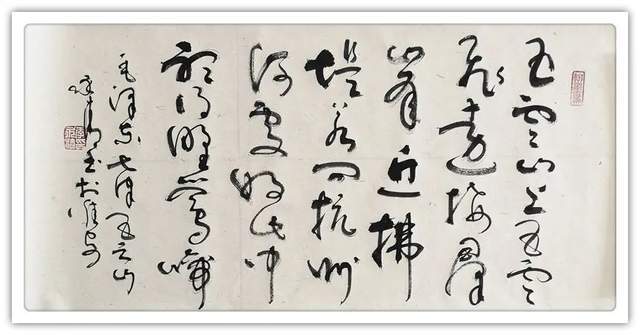 五雲山上五雲
飛遠接群
峯近拂
堤若问杭州
何处好此中
听得野莺啼
毛泽东七律五云山
书于